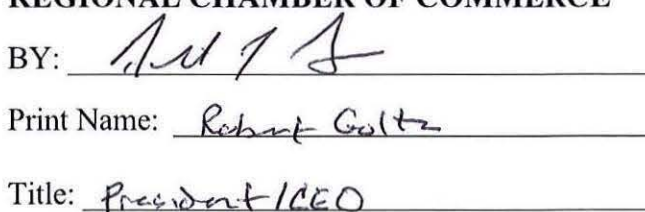 REGIONAL CHAMBER OF COMMERCE
BY:
Print Name: Robert Goltz
Title: President/CEO